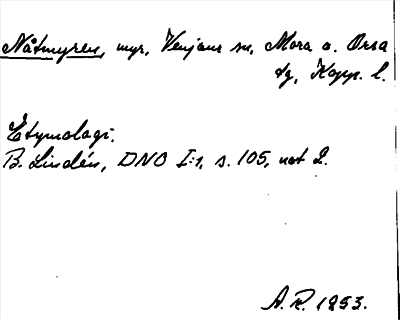 Nåtmyren, myr, Venjans sn, Mora o. Orsa
tg, Kopp. l.
Etymologi.
B. Lindén, DNO I:1, s. 105, not 2.
A. R. 1953.